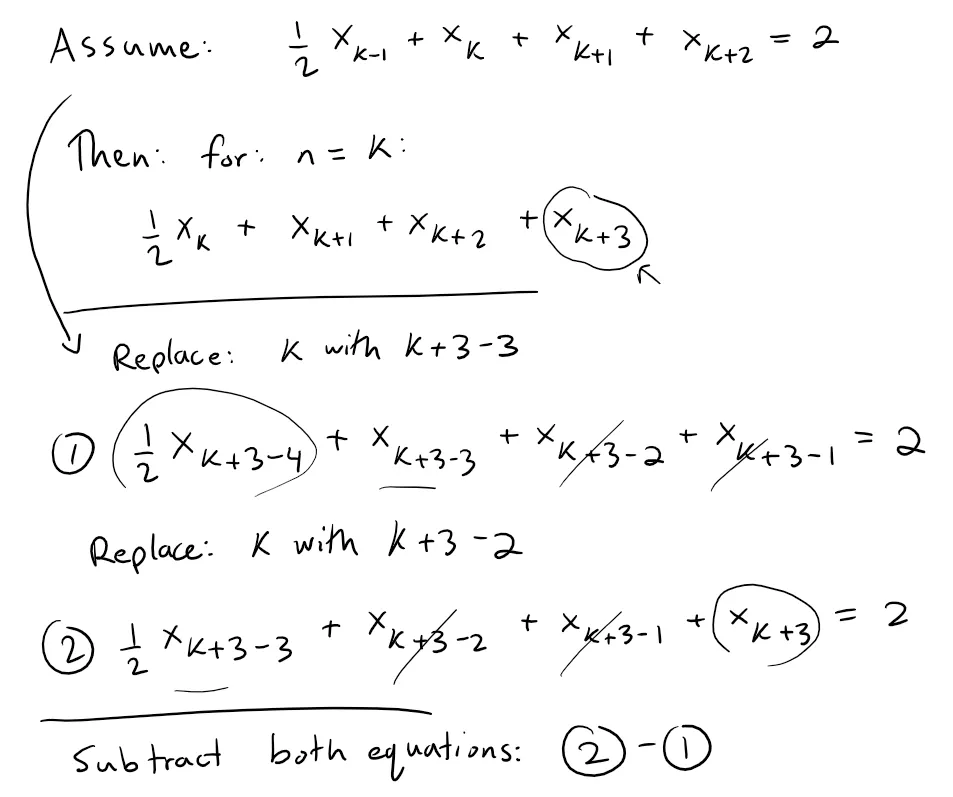 Assume: 1/2 x_{k-1} + x_k + x_{k+1} + x_{k+2} = 2
Then: for: n = k:
1/2 x_k + x_{k+1} + x_{k+2} + x_{k+3}
Replace: k with k+3-3
① 1/2 x_{k+3-4} + x_{k+3-3} + x_{k+3-2} + x_{k+3-1} = 2
Replace: k with k+3-2
② 1/2 x_{k+3-3} + x_{k+3-2} + x_{k+3-1} + x_{k+3} = 2
Subtract both equations: ② - ①